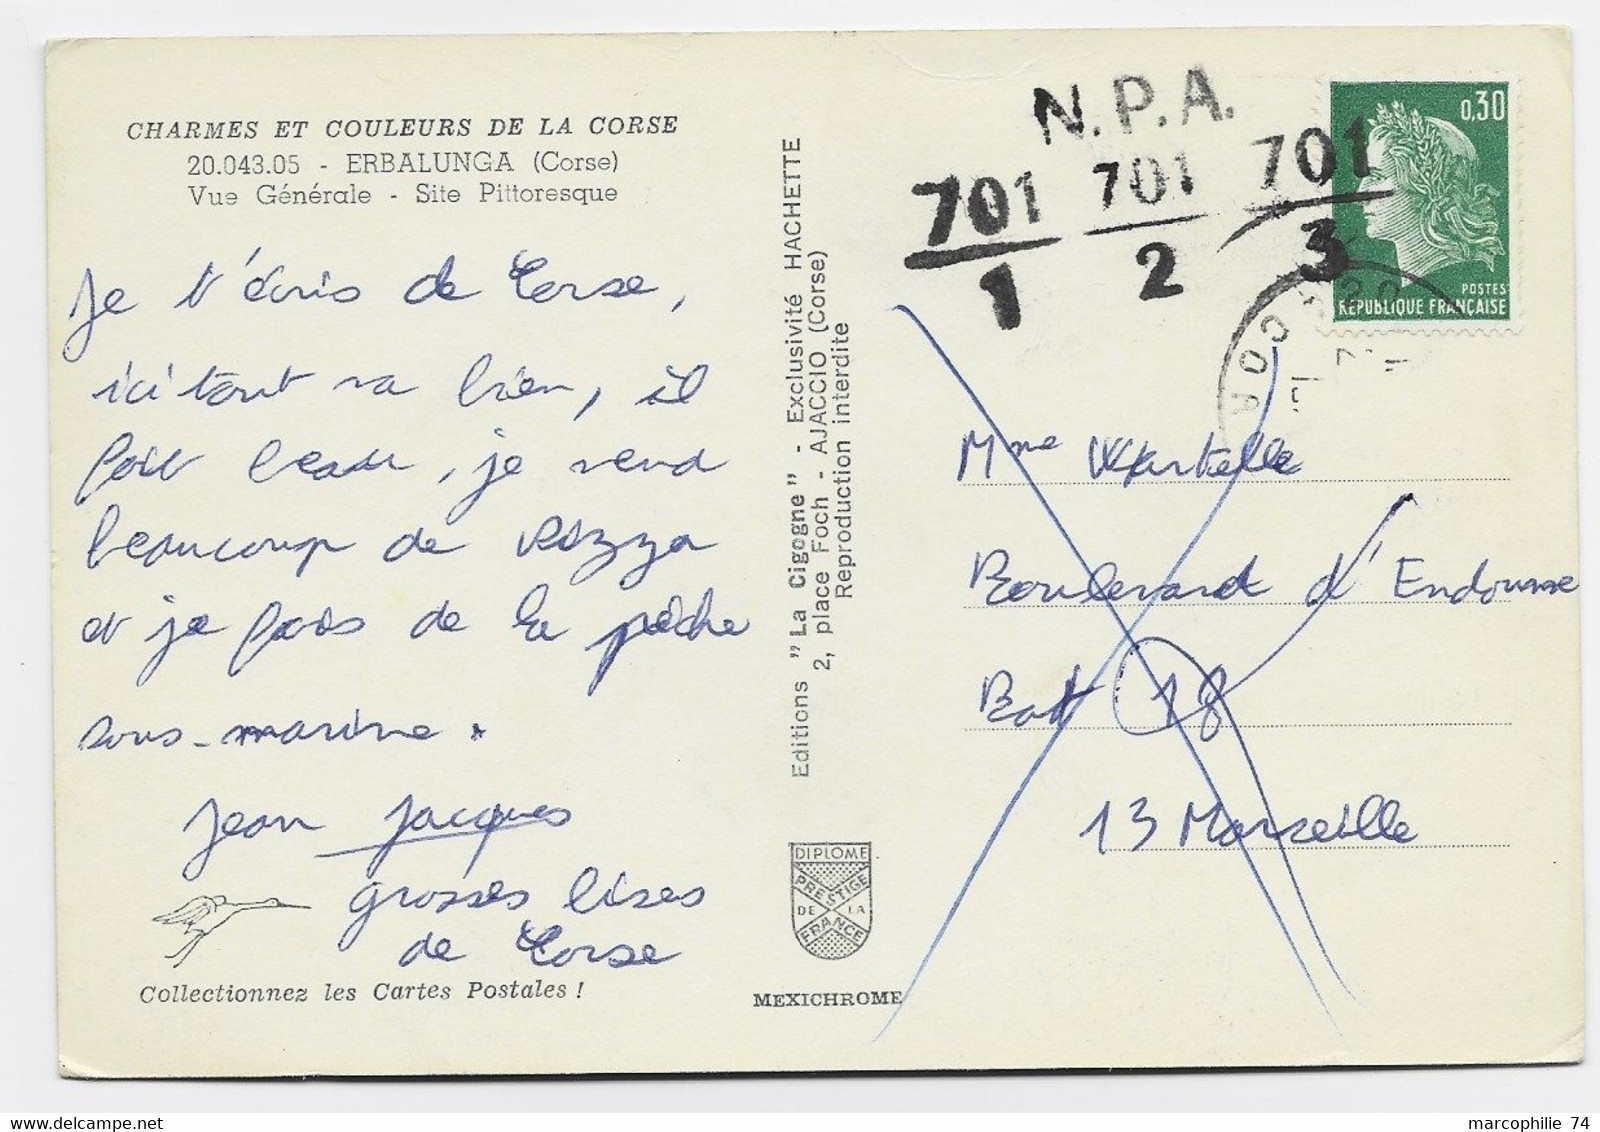 CHARMES ET COULEURS DE LA CORSE
20.043.05 - ERBALUNGA (Corse)
Vue Générale - Site Pittoresque
Je t'écris de Corse,
ici tout va bien, il
fait beau, je vend
beaucoup de Pizza
et je fais de la pêche
sous-marine.
Jean Jacques
grosses bises
de Corse
Collectionnez les Cartes Postales !
Editions "La Cigogne" - Exclusivité HACHETTE
2, place Foch - AJACCIO (Corse)
Reproduction interdite
DIPLOME
PRESTIGE
DE LA
FRANCE
MEXICHROME
N.P.A.
701 701 701
1 2 3
0,30
POSTES
REPUBLIQUE FRANÇAISE
Mme
Boulevard d'Endoume
Bat 18
13 Marseille
marcophilie 74